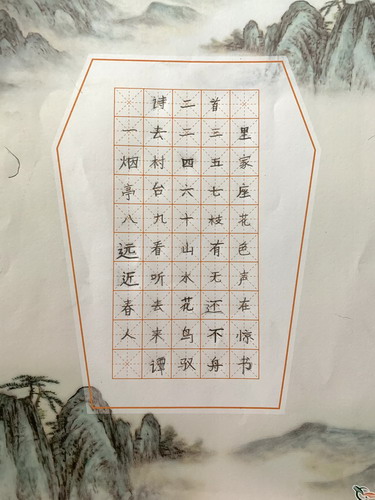 诗二首
一去二三里
烟村四五家
亭台六七座
八九十枝花
远看山有色
近听水无声
春去花还在
人来鸟不惊
谭驭舟书